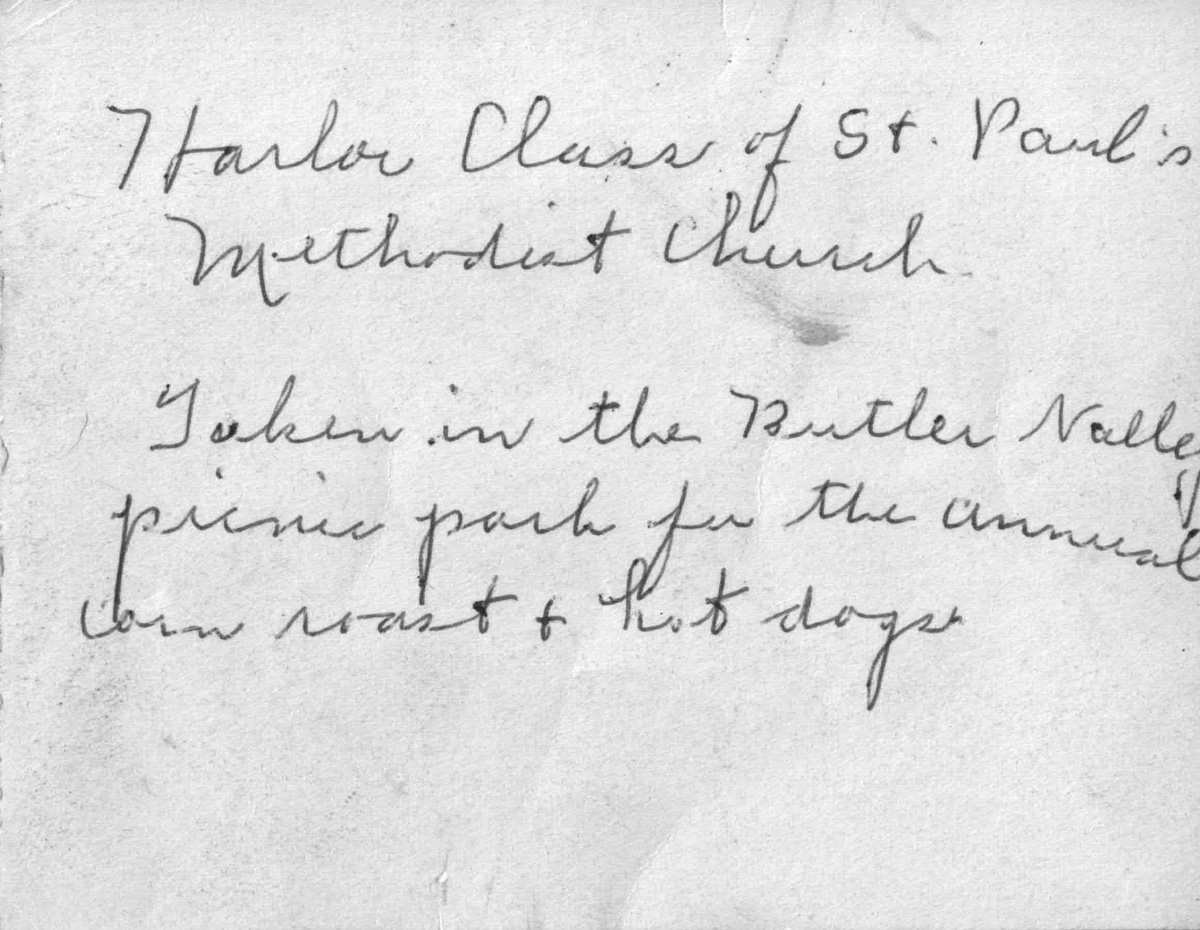 Harlor Class of St. Paul's
Methodist Church.
Taken in the Butler Valley
picnic park for the annual
corn roast + hot dogs.